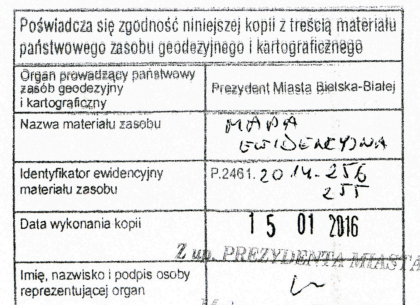 Poświadcza się zgodność niniejszej kopii z treścią materiału
państwowego zasobu geodezyjnego i kartograficznego
Organ prowadzący państwowy
zasób geodezyjny
i kartograficzny
Prezydent Miasta Bielska-Białej
Nazwa materiału zasobu
MAPA
EWIDENCYJNA
Identyfikator ewidencyjny
materiału zasobu
P.2461.2014.256
255
Data wykonania kopii
15 01 2016
Z up. PREZYDENTA MIASTA
Imię, nazwisko i podpis osoby
reprezentującej organ